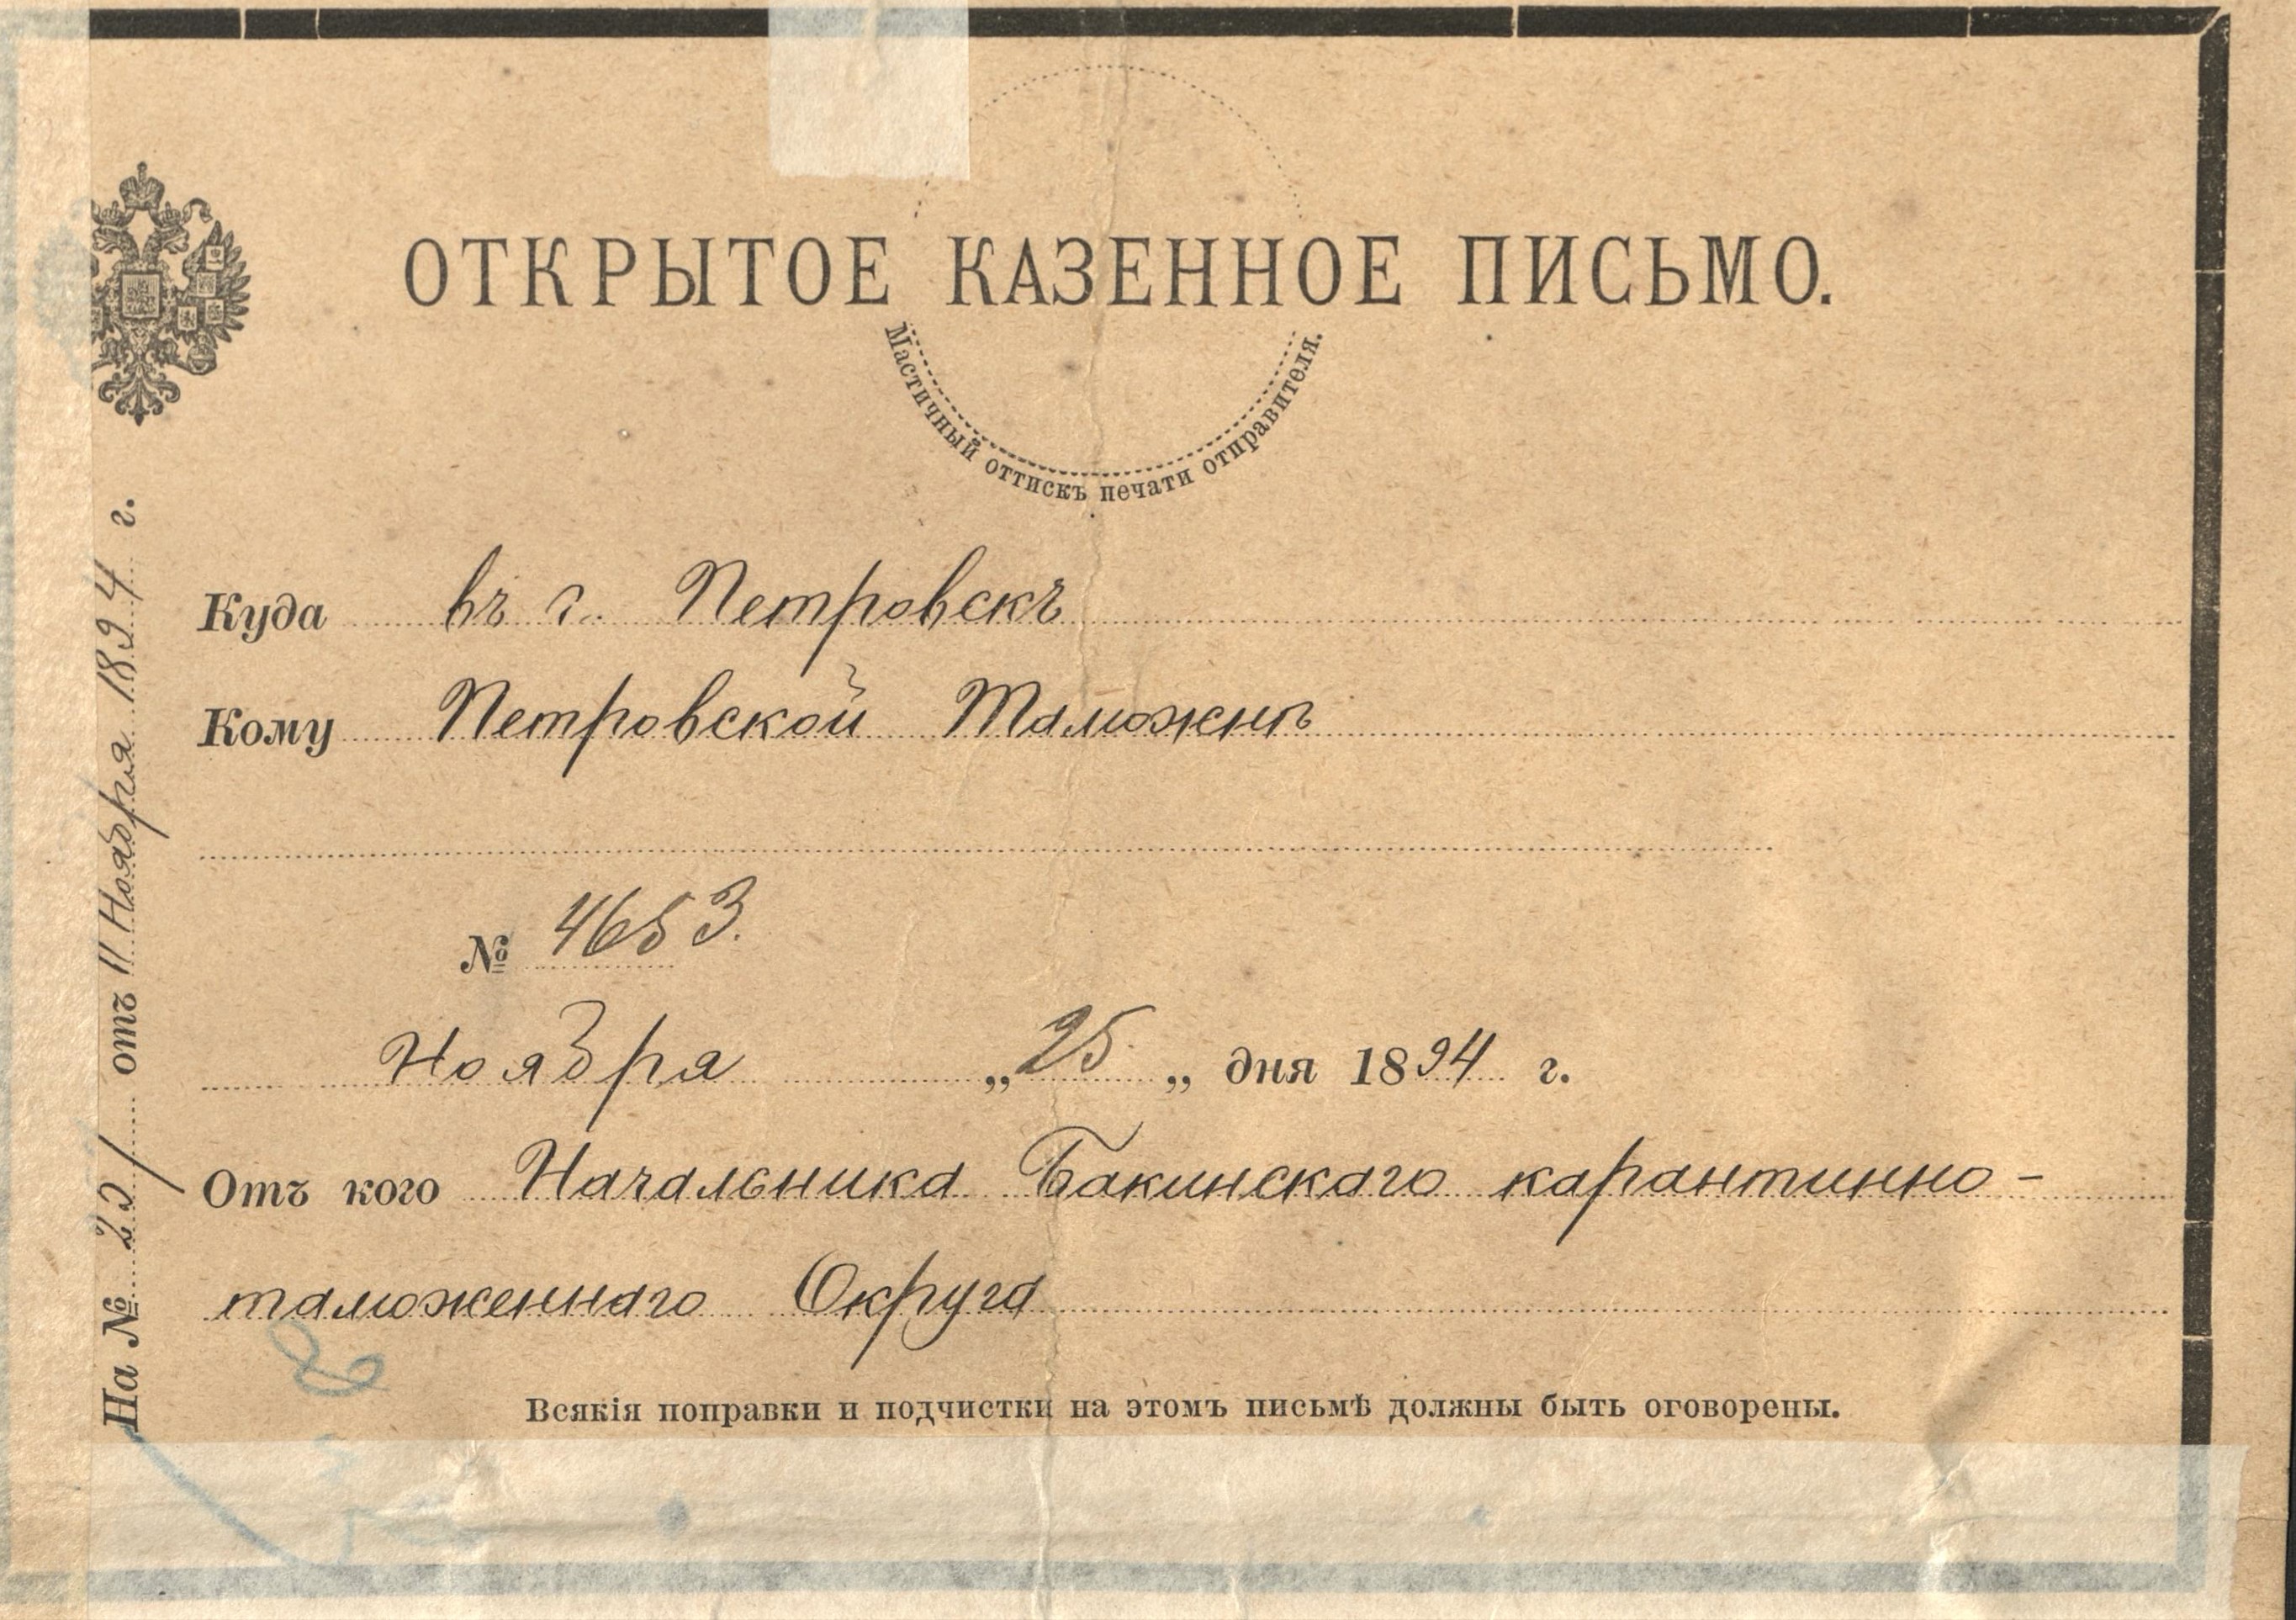 ОТКРЫТОЕ КАЗЕННОЕ ПИСЬМО.
Мастичный оттискъ печати отправителя.
Куда въ г. Петровскъ
Кому Петровской Таможнѣ
№ 4653.
Ноября „25„ дня 1894 г.
Отъ кого Начальника Бакинскаго карантинно-
таможеннаго Округа
Всякія поправки и подчистки на этомъ письмѣ должны быть оговорены.
На № отъ 11 Ноября 1894 г.